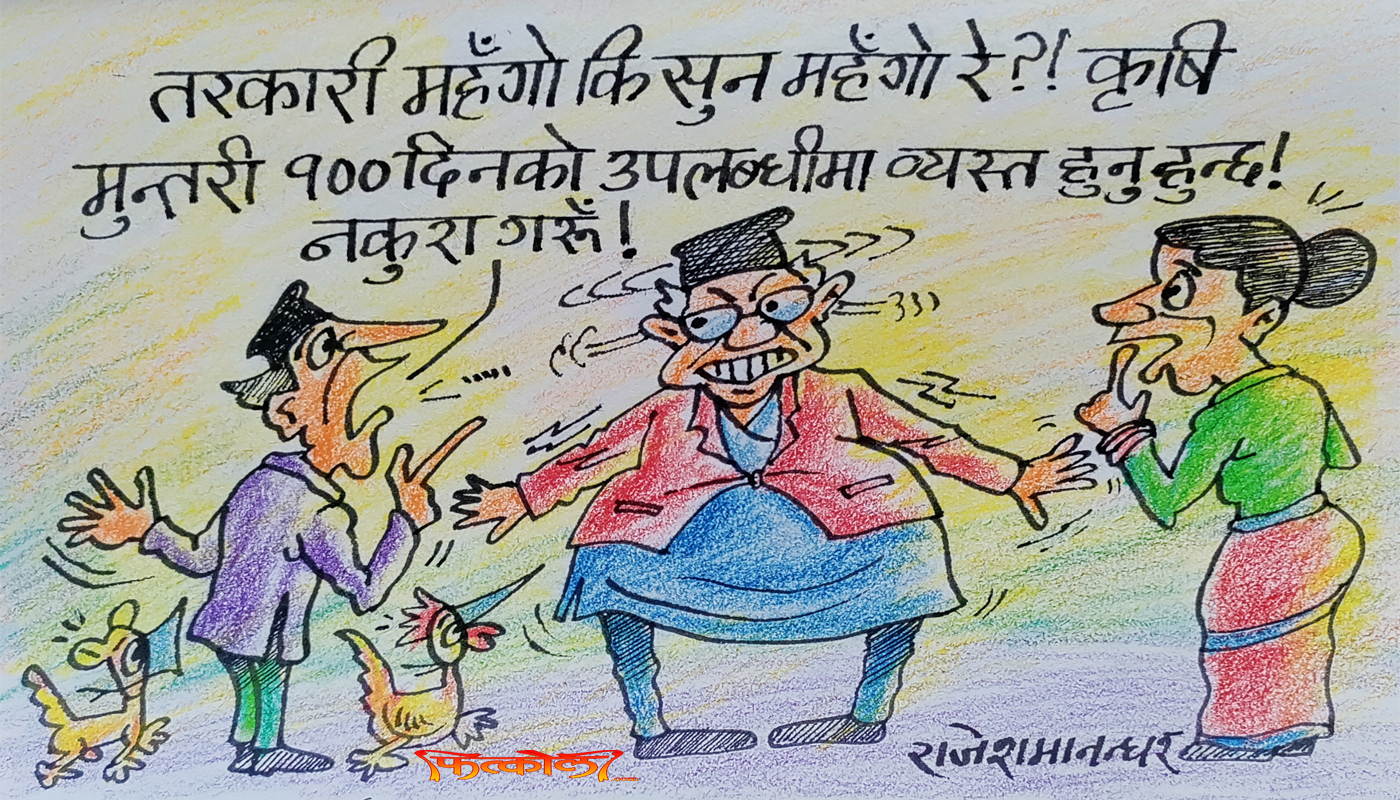 तरकारी महँगो कि सुन महँगो रे?! कृषि
मुन्तरी १०० दिनको उपलब्धीमा व्यस्त हुनुहुन्छ!
नकुरा गरूँ!
राजेश मानन्धर
फित्कौली